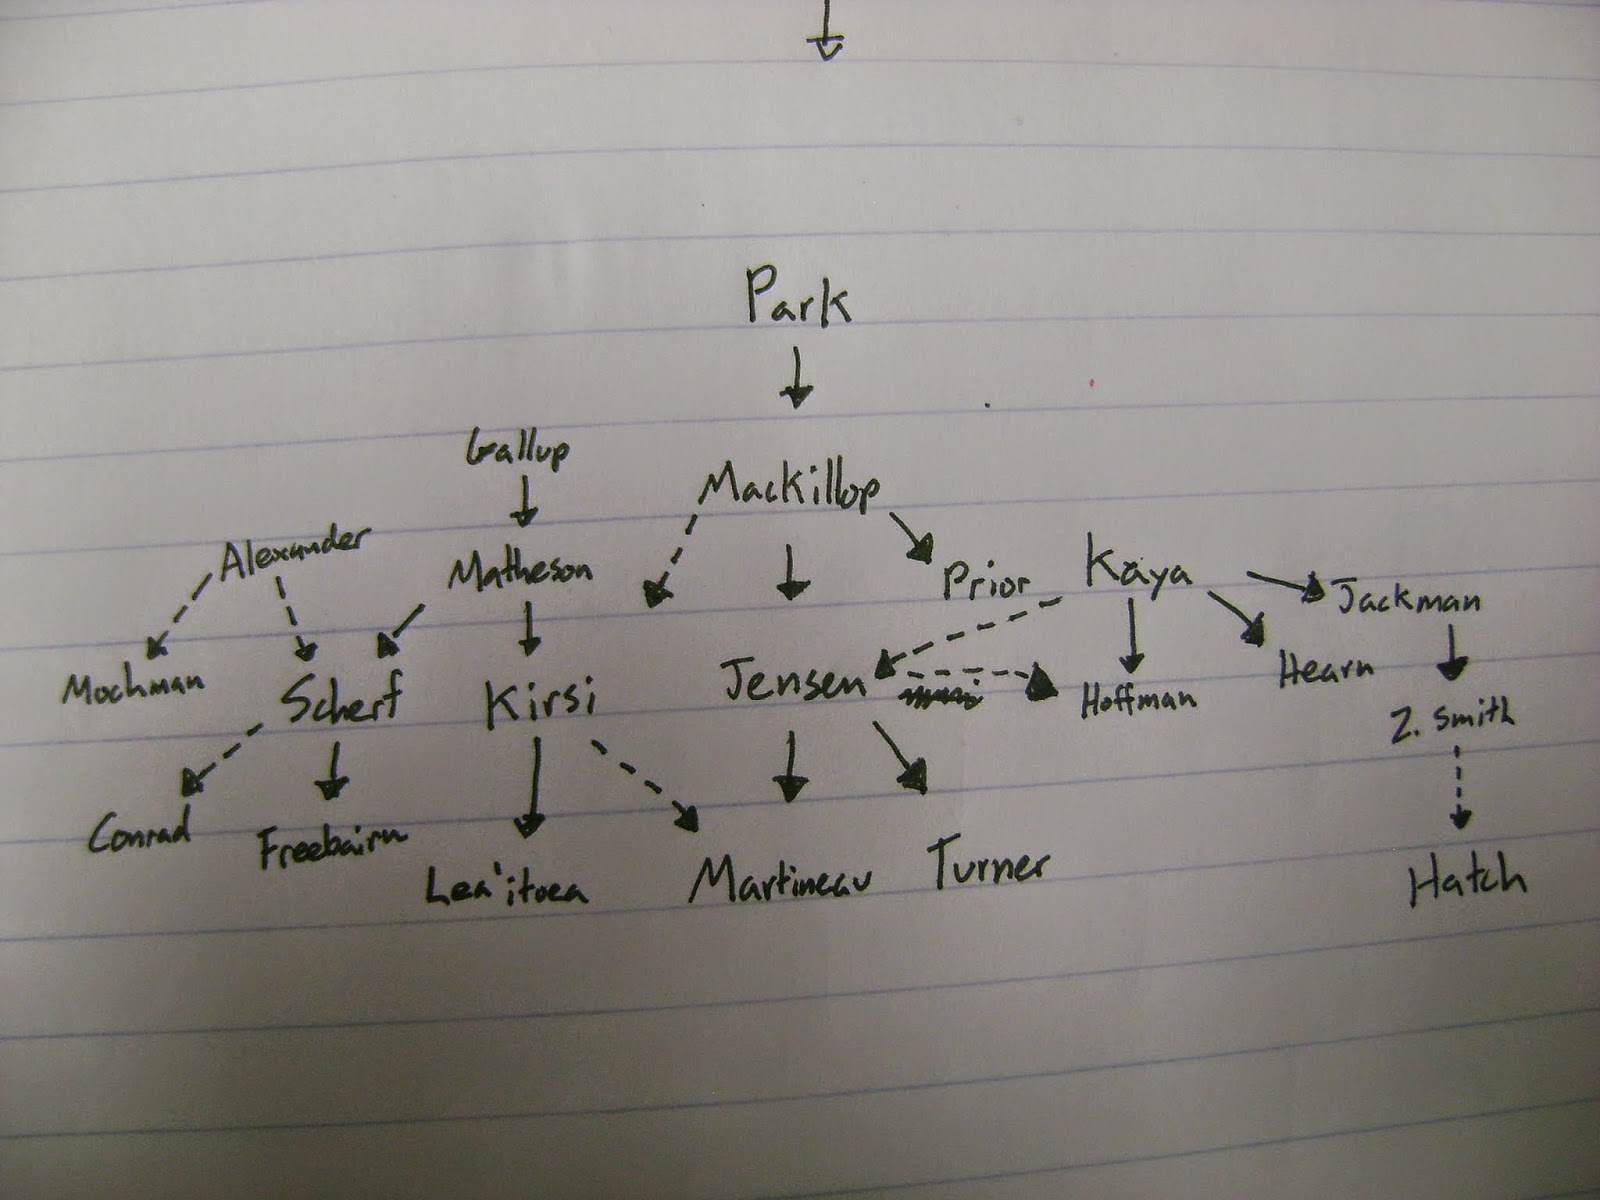 Park
Gallup
Mackillop
Alexander
Matheson
Prior
Kaya
Jackman
Mochman
Scherf
Kirsi
Jensen
Hoffman
Hearn
Z. Smith
Conrad
Freebairn
Lea'itoea
Martineau
Turner
Hatch